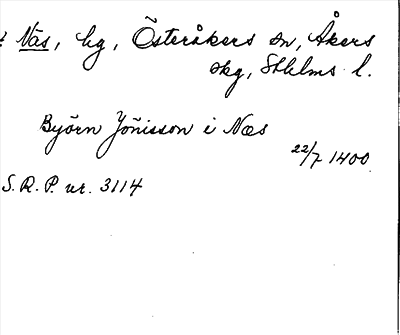 Näs, by, Österåkers sn, Åkers
skg, Sthlms l.
Byörn Jönisson i Næs
22/7 1400
S.R.P. nr. 3114